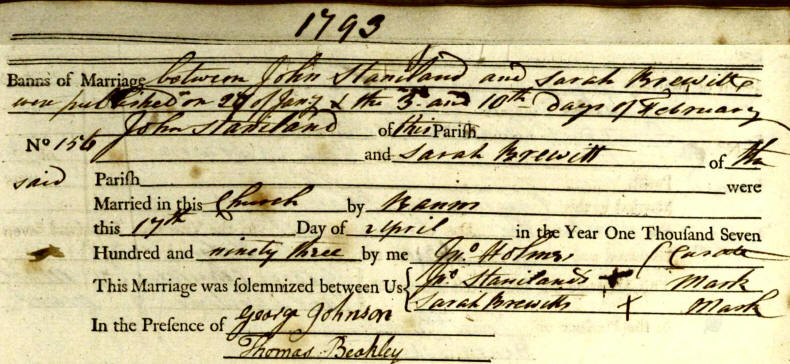 1793
Banns of Marriage between John Staniland and Sarah Brewitt
were published on 27 of Jany & the 3d and 10th Days of February
John Staniland of this Parish
No 156
and Sarah Brewitt of the
said Parish were
Married in this Church by Banns
this 17th Day of April in the Year One Thousand Seven
Hundred and ninety three by me Jno Holmes Curate
This Marriage was solemnized between Us Jno Stanilands + Mark
Sarah Brewitts X Mark
In the Presence of George Johnson
Thomas Beakley